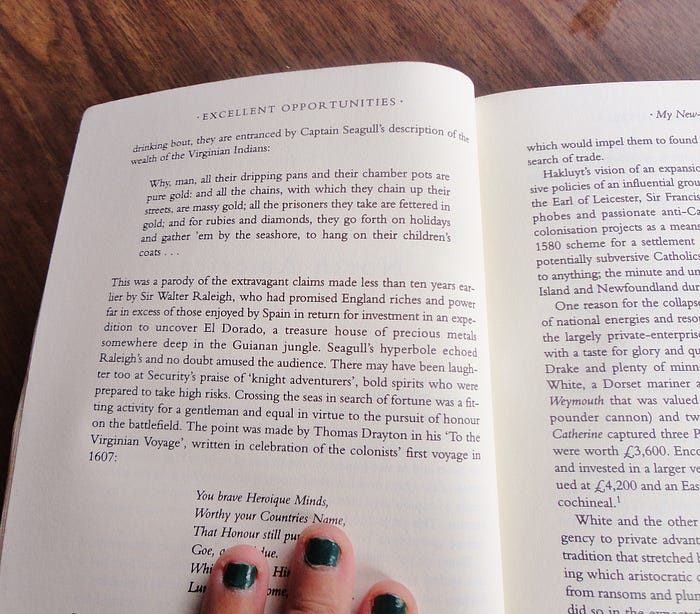 · EXCELLENT OPPORTUNITIES ·
drinking bout, they are entranced by Captain Seagull's description of the
wealth of the Virginian Indians:
Why, man, all their dripping pans and their chamber pots are
pure gold: and all the chains, with which they chain up their
streets, are massy gold; all the prisoners they take are fettered in
gold; and for rubies and diamonds, they go forth on holidays
and gather 'em by the seashore, to hang on their children's
coats . . .
This was a parody of the extravagant claims made less than ten years ear-
lier by Sir Walter Raleigh, who had promised England riches and power
far in excess of those enjoyed by Spain in return for investment in an expe-
dition to uncover El Dorado, a treasure house of precious metals
somewhere deep in the Guianan jungle. Seagull's hyperbole echoed
Raleigh's and no doubt amused the audience. There may have been laugh-
ter too at Security's praise of 'knight adventurers', bold spirits who were
prepared to take high risks. Crossing the seas in search of fortune was a fit-
ting activity for a gentleman and equal in virtue to the pursuit of honour
on the battlefield. The point was made by Thomas Drayton in his 'To the
Virginian Voyage', written in celebration of the colonists' first voyage in
1607:
You brave Heroique Minds,
Worthy your Countries Name,
That Honour still
Goe,
· My New-
which would impel them to found
search of trade.
Hakluyt's vision of an
sive policies of an influential
the Earl of Leicester, Sir
phobes and passionate
colonisation projects as a means
1580 scheme for a settlement
potentially subversive Catholics
to anything; the minute and
Island and Newfoundland
One reason for the
of national energies and
the largely
with a taste for glory and
Drake and plenty of
White, a Dorset mariner
Weymouth that was valued
pounder cannon) and
Catherine captured three
were worth £3,600.
and invested in a larger
ued at £4,200 and an
cochineal.1
White and the other
gency to private
tradition that stretched
ing which aristocratic
from ransoms and
did so in the